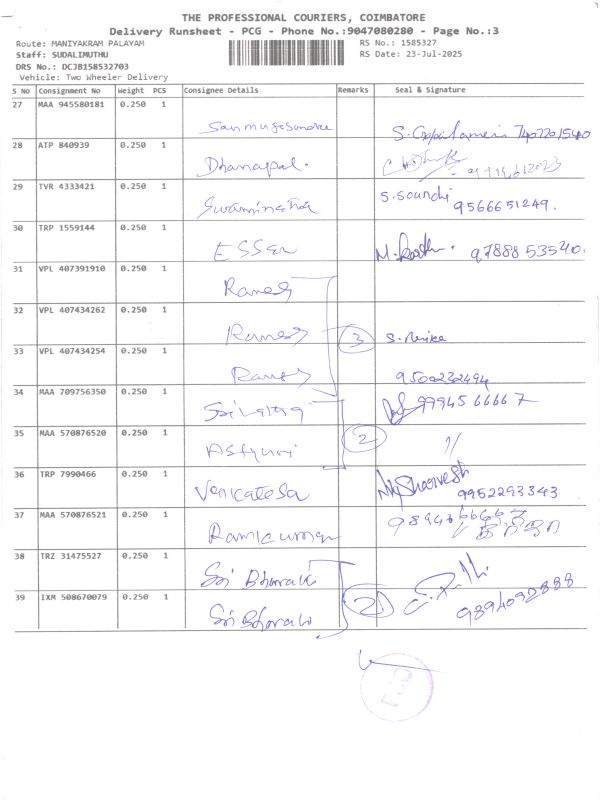 THE PROFESSIONAL COURIERS, COIMBATORE
Delivery Runsheet - PCG - Phone No.:9047080280 - Page No.:3
Route: MANIYAKRAM PALAYAM RS No.: 1585327
Staff: SUDALIMUTHU RS Date: 23-Jul-2025
DRS No.: DCJB158532703
Vehicle: Two Wheeler Delivery
S No Consignment No Weight PCS Consignee Details Remarks Seal & Signature
27 MAA 945580181 0.250 1
28 ATP 840939 0.250 1 Dhanapal.
29 TVR 4333421 0.250 1 S.Soundi 9566651249.
30 TRP 1559144 0.250 1 ESSEN 97888 53540.
31 VPL 407391910 0.250 1 Ramesh
32 VPL 407434262 0.250 1 Ramesh 3
33 VPL 407434254 0.250 1 Ramesh 9500232494
34 MAA 709756350 0.250 1 99945 66667
35 MAA 570876520 0.250 1 2 "
36 TRP 7990466 0.250 1 Venkatesa 9952293343
37 MAA 570876521 0.250 1 Ramkumar
38 TRZ 31475527 0.250 1 Sri Bharati
39 IXM 508670079 0.250 1 Sri Bharati 2 9894092888